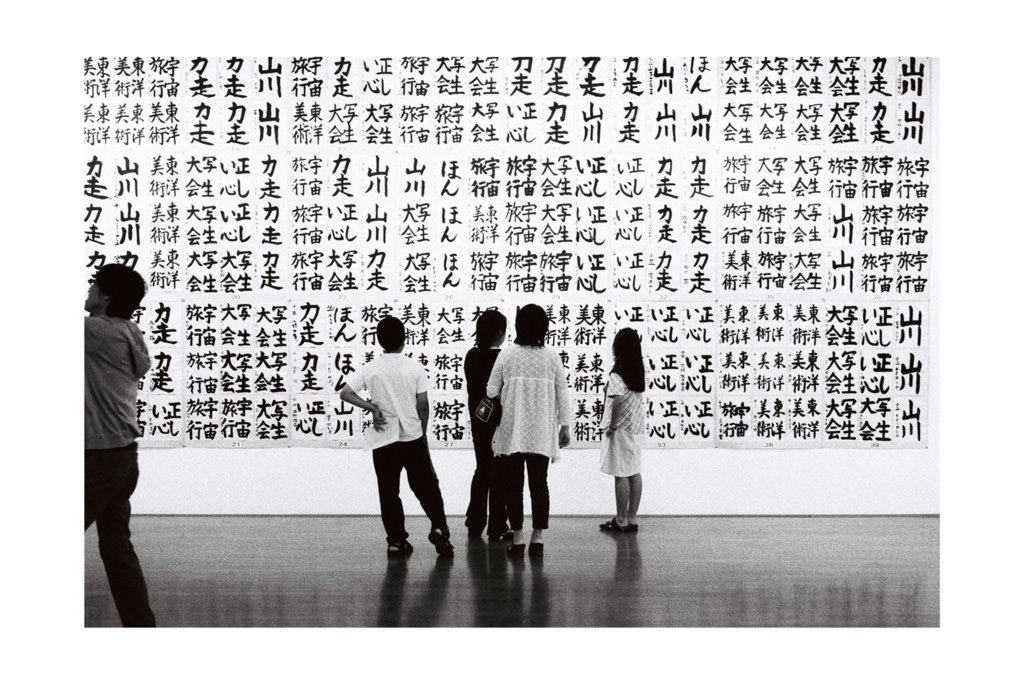 山川 力走 写生大会 写生大会 写生大会 写生大会 ほん 山川 力走 力走 力走 力走 写生大会 写生大会 宇宙旅行 正しい心 力走 宇宙旅行 山川 力走 力走 宇宙旅行 東洋美術 東洋美術
山川 力走 写生大会 東洋美術 写生大会 写生大会 山川 山川 力走 山川 正しい心 正しい心 写生大会 宇宙旅行 宇宙旅行 写生大会 写生大会 東洋美術 山川 力走 力走 東洋美術 東洋美術 東洋美術
宇宙旅行 宇宙旅行 宇宙旅行 写生大会 写生大会 宇宙旅行 力走 力走 正しい心 正しい心 写生大会 宇宙旅行 宇宙旅行 ほん 山川 山川 力走 宇宙旅行 力走 正しい心 写生大会 東洋美術 山川 力走
宇宙旅行 宇宙旅行 山川 写生大会 宇宙旅行 宇宙旅行 力走 力走 正しい心 正しい心 写生大会 宇宙旅行 東洋美術 ほん 写生大会 山川 正しい心 宇宙旅行 力走 正しい心 写生大会 東洋美術 山川 力走
宇宙旅行 宇宙旅行 山川 写生大会 宇宙旅行 東洋美術 力走 力走 正しい心 正しい心 宇宙旅行 宇宙旅行 宇宙旅行 ほん 写生大会 力走 写生大会 宇宙旅行 力走 写生大会 写生大会 東洋美術 力走 力走
山川 正しい心 写生大会 東洋美術 東洋美術 東洋美術 正しい心 正しい心 東洋美術 写生大会 東洋美術 宇宙旅行 ほん 力走 写生大会 写生大会 宇宙旅行 力走
山川 正しい心 写生大会 東洋美術 東洋美術 東洋美術 正しい心 正しい心 東洋美術 写生大会 ほん 力走 写生大会 写生大会 宇宙旅行 力走
山川 写生大会 写生大会 東洋美術 東洋美術 宇宙旅行 正しい心 正しい心 東洋美術 宇宙旅行 山川 正しい心 写生大会 宇宙旅行 宇宙旅行 正しい心
39 36 33 27 24 21